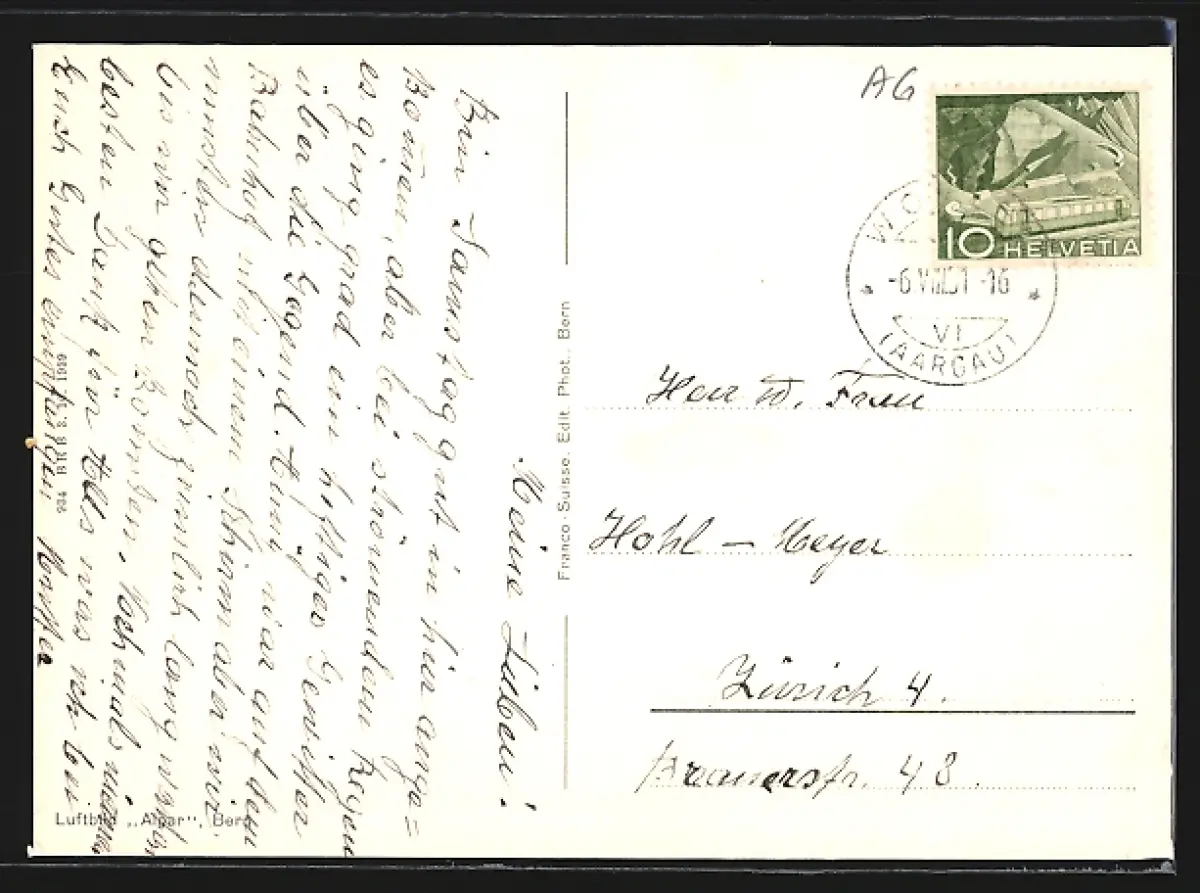 Meine Lieben!
Bin Samstag gut in hier ange=
kommen, aber bei strömendem Regen
es ging grad ein heftiger Gewitter
über die Gegend. Hami war auf dem
Bahnhof mit einem Schirm aber wir
mussten dennoch ziemlich lang warten
bis wir gehen konnten. Nochmals meinen
besten Dank für Alles was ich bei
Euch Gutes empfangen
Luftbild „Alpar“, Bern
934 BRB 3. 1939
Franco-Suisse. Edit. Phot., Bern
A6
10 HELVETIA
-6 VIII.51 -16
VI
(AARGAU)
Herr u. Frau
Hohl – Meyer
Zürich 4.
Brauerstr. 48.